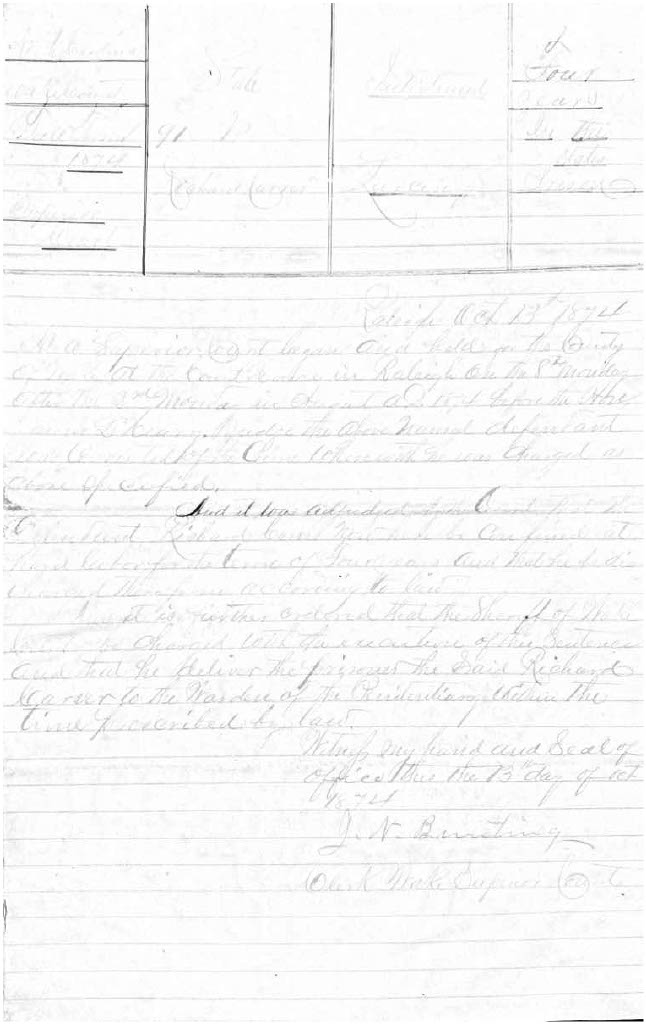 N. Carolina
Wake County
Fall Term
1874
Superior
Court
State
91 V
Richard Carver
Indictment
Larceny
Four
Years
In the
States
Prison
Raleigh Oct 13th 1874
At a Superior Court began and held for the County
of Wake at the Court house in Raleigh on the 8th Monday
after the 2nd Monday in August 1874 before the Hon
Judge the above named defendant
was Convicted of the Crime wherewith he was Charged as
above Specified.
And it was adjudged by the Court that the
defendant Richard Carver be Confined at
hard labor for the term of Four years and that he be dis
charged therefrom according to law
And it is further ordered that the Sheriff of Wake
County be charged with the execution of this Sentence
and that he deliver the prisoner the Said Richard
Carver to the Warden of the Penitentiary within the
time prescribed by law.
Witness my hand and Seal of
office this the 13th day of Oct
1874
J. N. Bunting
Clerk Wake Superior Court